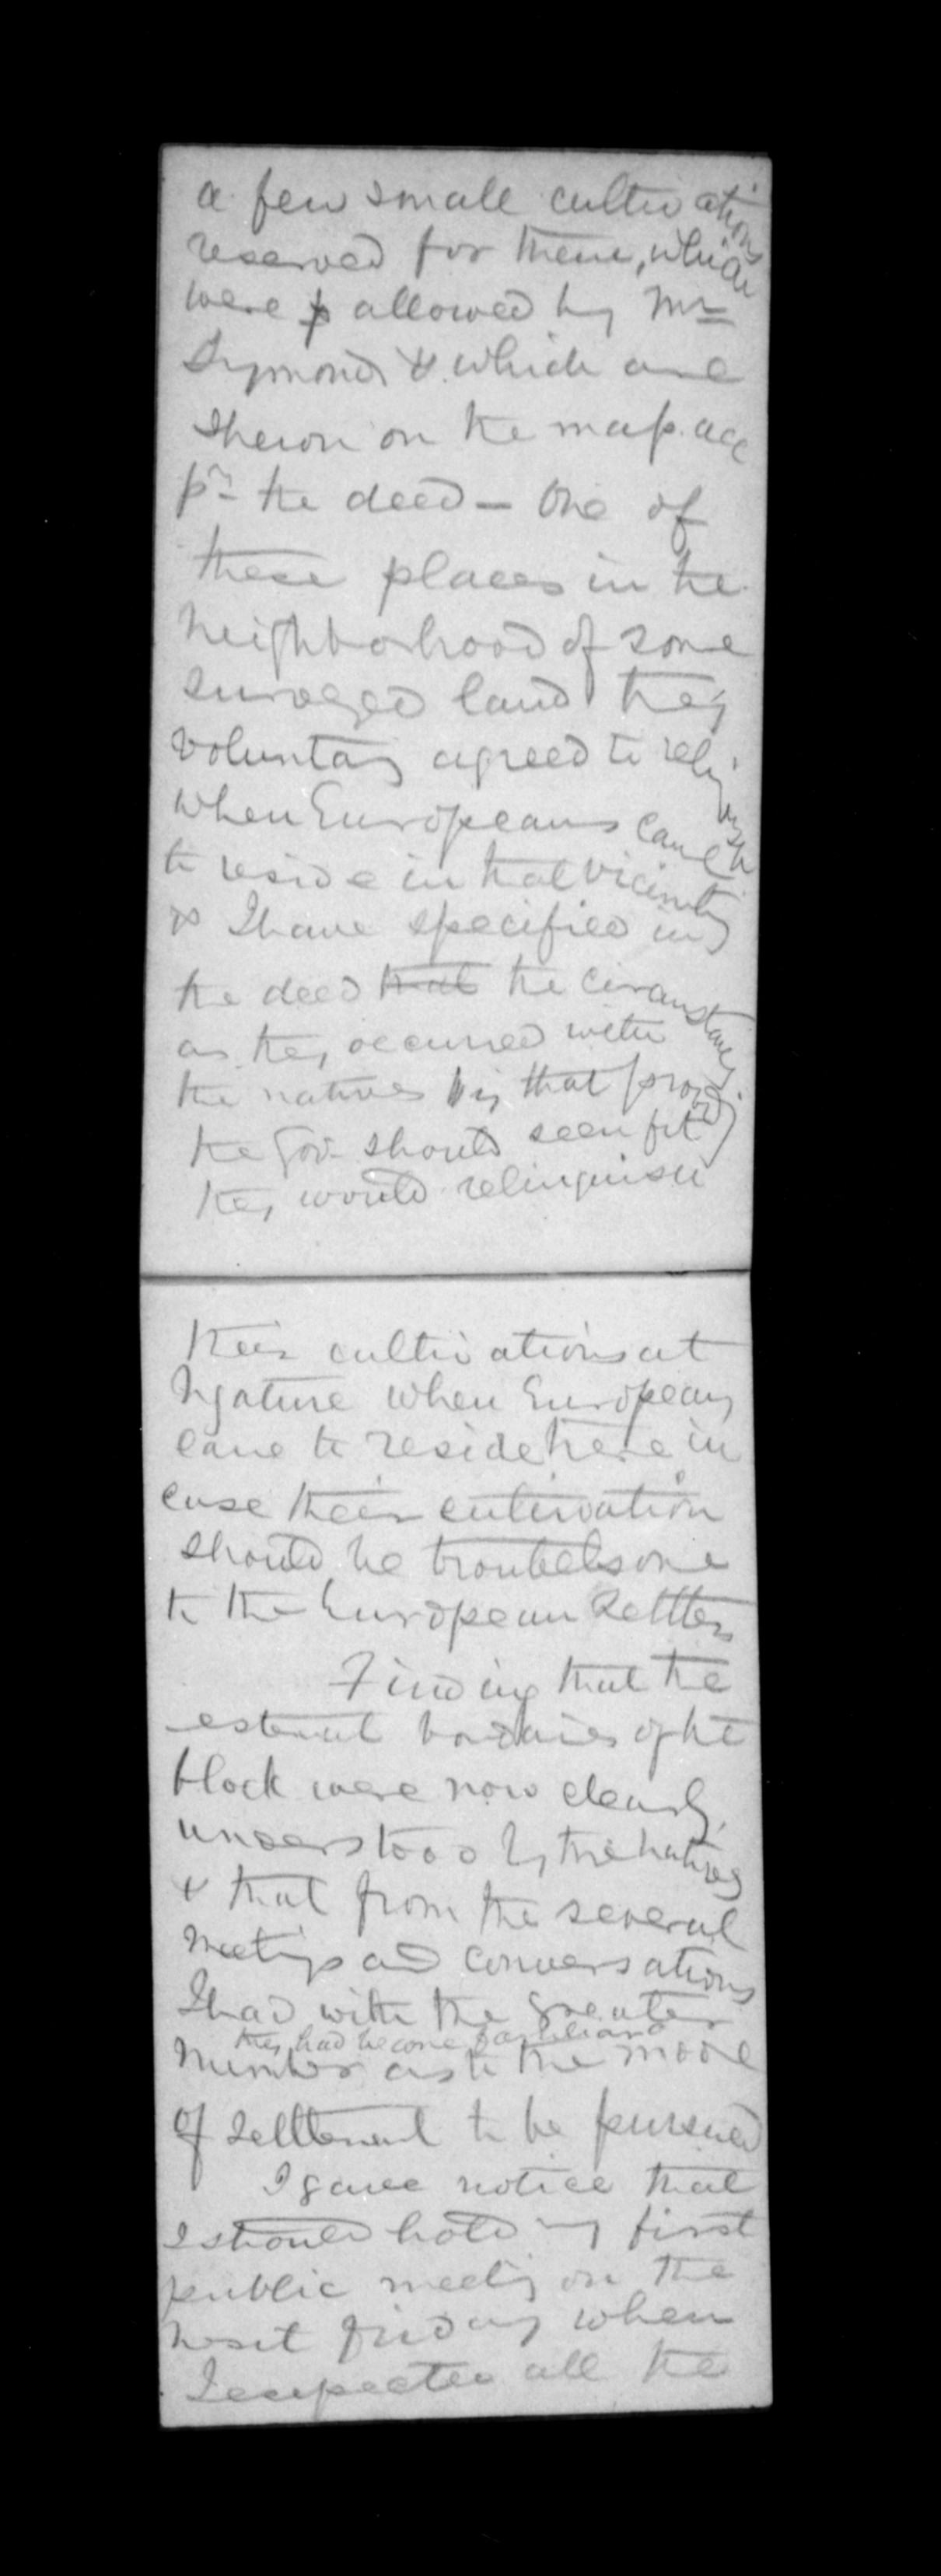 a few small cultivations
reserved for them, which
were allowed by Mr
Symonds & which are
shewn on the map acc
pr the deed — One of
these places in the
neighborhood of some
surveyed land they
voluntary agreed to relinquish
when Europeans came
to reside in that vicinity
& I have specified in
the deed that the circumstances
as they occurred with
the natives viz that provided
the Gov should seem fit
they would relinquish
their cultivations at
Ngature when Europeans
came to reside here in
case their cultivation
should be troubelsome
to the European Settlers
Finding that the
external bordaries of the
block were now clearly
understood by the natives
& that from the several
meetings and conversations
I had with the greater
they had become familiar
number as to the mode
of settlement to be pursued
I gave notice that
I should hold my first
public meeting on the
next friday when
I expected all the